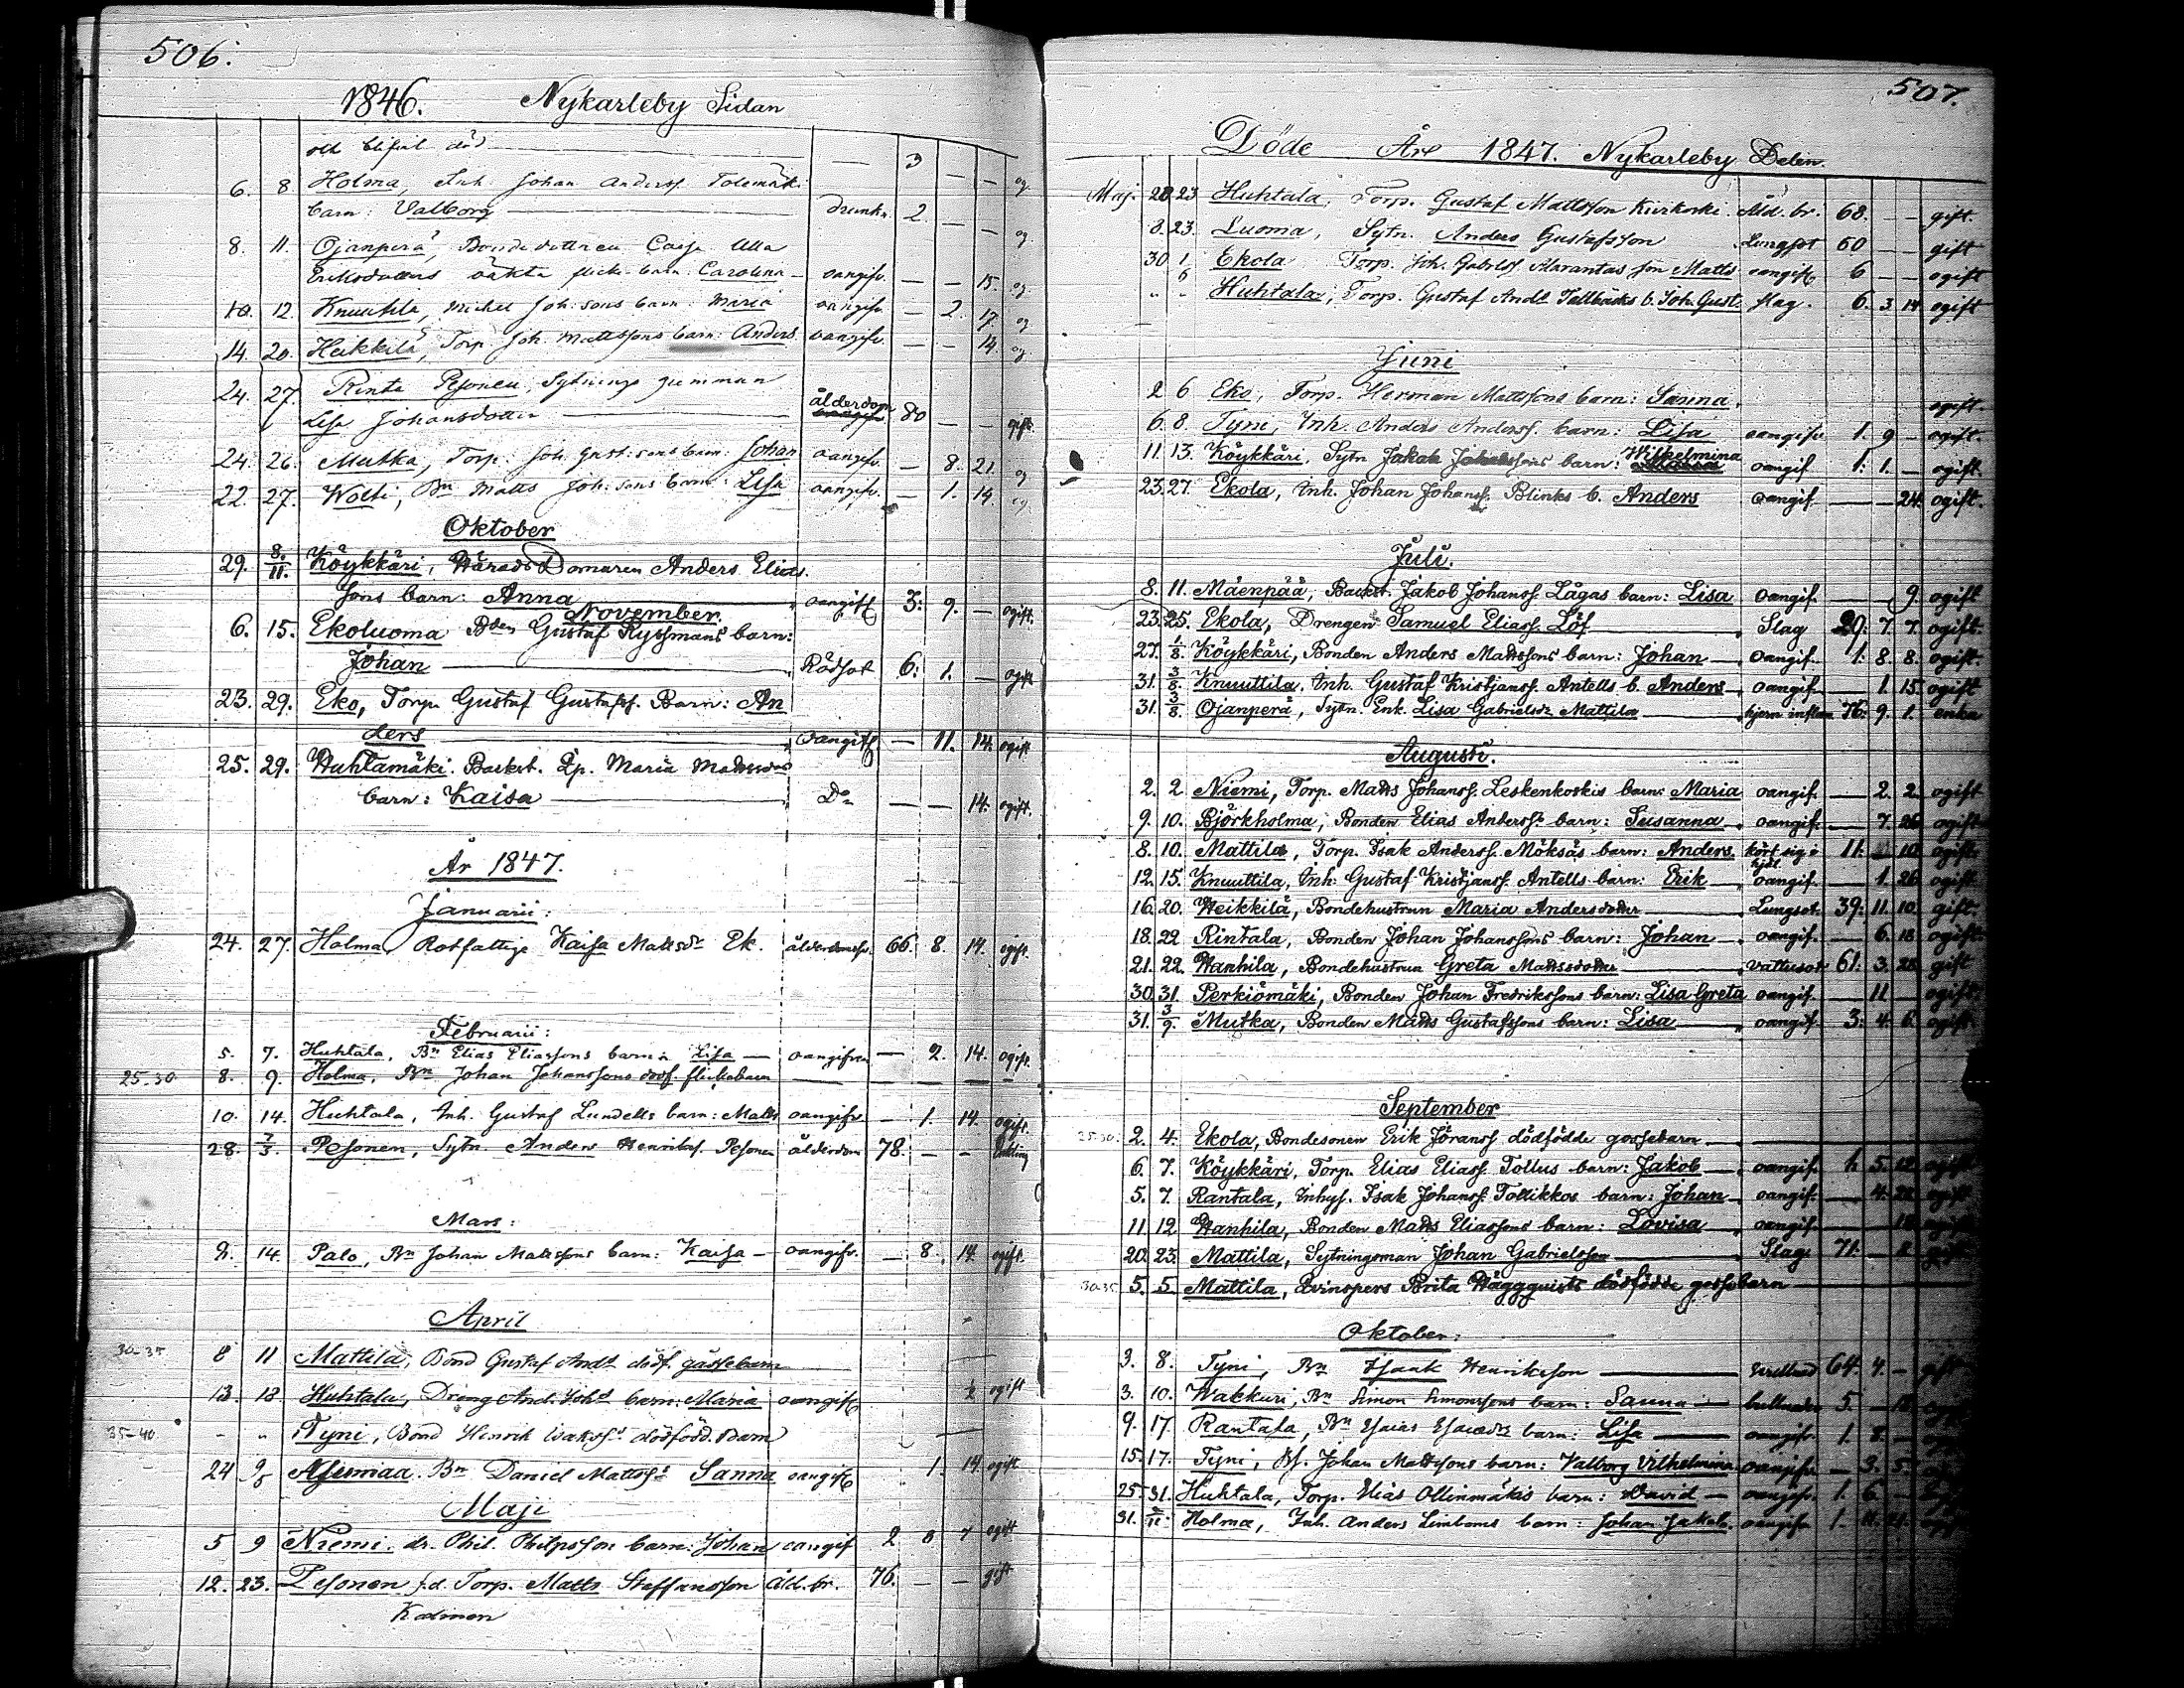 506.
1846. Nykarleby Sidan
död — 3 — —
6. 8 Holma, Inh. Johan Anderss. Tolemäk. og
barn: Valborg — drunkn. 2 — —
8. 11. Ojanperä, Bondedottren Cajsa Ulla og
Eriksdotters oäkta flicke barn: Carolina — oangifv. — — 15. og
10. 12. Knuuttila, Michel Joh:sons barn: Maria oangifv. — 2. 17. og
14. 20. Heikkilä, Torp. Joh. Mattssons barn: Anders oangifv. — — 14. og
24. 27. Rinta Pesonen, Sytnings gumman
Lisa Johansdotter — ålderdom 80 — — gift
24. 26. Mutka, Torp. Joh. Gust:sons barn: Johan oangifv. — 8. 21. og
22. 27. Wolti, Bn Matts Joh:sons barn: Lisa oangifv. — 1. 14. og
Oktober
29. 8/11. Köykkäri, Härads Domaren Anders Elias
sons barn: Anna oangift 3: 9. — ogift.
November.
6. 15. Ekoluoma Bden Gustaf Ryssmans barn:
Johan — Rödsot 6: 1. — ogift
23. 29. Eko, Torp. Gustaf Gustafss. Barn: An
ders — oangift — 11. 14. ogift
25. 29. Huhtamäki. Backst. Qp. Maria Mattsdos
barn: Kaisa — Do — — 14. ogift.
År 1847.
Januarii:
24. 27. Holma, Rotfattige Kaisa Mattsdr Ek. ålderdomsv. 66. 8. 14. ogift.
Februarii:
5. 7. Huhtala, Bn Elias Eliassons barn: Lisa — oangifven — 2. 14. ogift.
25-30 8. 9. Holma, Bn Johan Johanssons dödf. flickebarn — — — —
10. 14. Huhtala, Inh. Gustaf Lundells barn: Matts oangifv. — 1. 14. ogift.
28. 7/3. Pesonen, Sytn. Anders Henriks. Pesonen ålderdom 78. — — Enkling
Mars:
9. 14. Palo, Bn Johan Mattssons barn: Kaisa — oangifv. — 8. 14. ogift.
April
30-35 8 11 Mattila, Bond Gustaf Ands dödf. gossebarn
13 18 Huhtala, Dräng And. Johs barn: Maria oangift ½ ogift
35-40 - " Tyni, Bond Henrik Isakss dödfödd. Barn —
24 9/5 Asunmaa Bn Daniel Mattss Sanna oangift 1. 14 ogift
Maji
5 9 Niemi. dr. Phil. Philpsson barn: Johan oangif 2 8 7 ogift
12. 23. Pesonen f.d. Torp. Matts Staffansson åld. br. 76. — — gift
507.
Döde År 1847. Nykarleby Delen.
Maj. 20 23 Huhtala, Torp. Gustaf Mattsson Kivikoski. Åld. br. 68. — — gift.
8. 23. Luoma, Sytn. Anders Gustafsson Lungsot 60 — — gift
30 1/6 Ekola Torp. Joh. Gabrlss Marantas son Matts oangift 6 — — ogift
" " Huhtala, Torp. Gustaf Ands Tallbacks b. Joh. Gust. slag. 6. 3 14 ogift
Juni
2 6 Eko, Torp. Herman Mattssons barn: Sanna. ogift.
6. 8. Tyni, Inh. Anders Anderss. barn: Lisa oangifv. 1. 9 — ogift.
11. 13. Köykkäri, Sytn Jakob barn: Wilhelmina oangif 1. 1. — ogift.
23. 27. Ekola, Inh. Johan Johanss. Blinks b. Anders oangif — — 24. ogift.
Juli.
8. 11. Mäenpää, Backst. Jakob Johanss. Lågas barn: Lisa oangif. — — 9. ogift
23. 25. Ekola, Drengen Samuel Eliass. Löf — Slag 29: 7. 7. ogift.
27. 1/8. Köykkäri, Bonden Anders Mattssons barn: Johan — oangif. 1: 8. 8. ogift.
31. 3/8. Knuuttila. Inh. Gustaf Kristjanss. Antells b. Anders oangif. — 1. 15. ogift
31. 3/8. Ojanperä, Sytn. Enk. Lisa Gabrielsdr Mattila — hjern inflam 76: 9. 1. enka
Augusti.
2. 2 Niemi, Torp. Matts Johanss. Leskenkoskis barn: Maria oangif. — 2. 2. ogift
9. 10. Björkholma, Bonden Elias Anderss. barn: Susanna. oangif. — 7. 25 ogift
8. 10. Mattila, Torp. Isak Anderss. Möksäs barn: Anders. kört sig i hjel 11: — 10. ogift.
12. 15. Knuuttila, Inh: Gustaf Kristjanss. Antells barn: Erik oangif. — 1. 26 ogift
16. 20. Heikkilä, Bondehustrun Maria Andersdotter — Lungsot. 39: 11. 10. gift.
18. 22 Rintala, Bonden Johan Johanssons barn: Johan — oangif. — 6. 18 ogift
21. 22. Wanhila, Bondehustrun Greta Mattssdotter — Vattusot 61: 3. 28. gift
30. 31. Perkiömäki, Bonden Johan Fredrikssons barn: Lisa Greta oangif. — 11 — ogift.
31. 3/9. Mutka, Bonden Matts Gustafssons barn: Lisa — oangif. 3: 4. 6. ogift
September
25-30. 2. 4. Ekola, Bondesonen Erik Jöranss dödfödde gossebarn —
6. 7. Köykkäri, Torp. Elias Eliass. Tollus barn: Jakob — oangif. 5. 12 ogift
5. 7. Rantala, Inhys. Isak Johanss. Tollikkos barn: Johan — oangif. — 4. 22 ogift
11. 12. Wanhila, Bonden Matts Eliassons barn: Lovisa — oangif.
20. 23. Mattila, Sytningsman Johan Gabrielsson — Slag 71. — 8. gift
30-35 5. 5 Mattila, Qvinspers Brita Häggquists dödfödde gossebarn —
Oktober:
3. 8. Tyni, Bn Isaak Henriksson — 64. 4. — gift
3. 10. Wakkuri, Bn Simon Simonssons barn: Sanna — 5. —
9. 17. Rantala, Bn Esaias barn: Lisa — oangifv. 1. 8. —
15. 17. Tyni, Johan Mattssons barn: Valborg Vilhelmina oangifv. — 3. 5.
25. 31. Huhtala, Torp. Elias Ollinmäkis barn: David — oangifv. 1. 6. —
31. Holma, Inh. Anders Limboms barn: Johan Jakob. oangifv. 1.